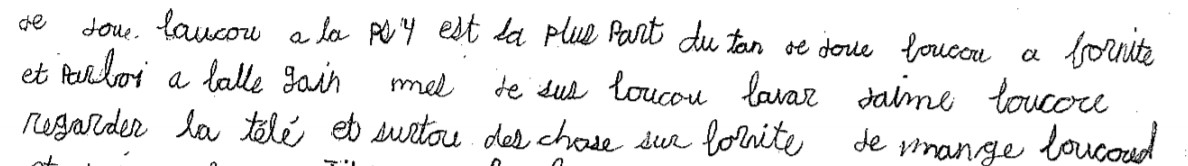 Je Joue. baucou a la PS4 est la plus Part du tan se Joue boucou a fornite
et Parboi a balle gain mes Je sus boucou bavar Jaime boucoce
regarder la télé et surtou des chose sur fornite Je mange boucoud